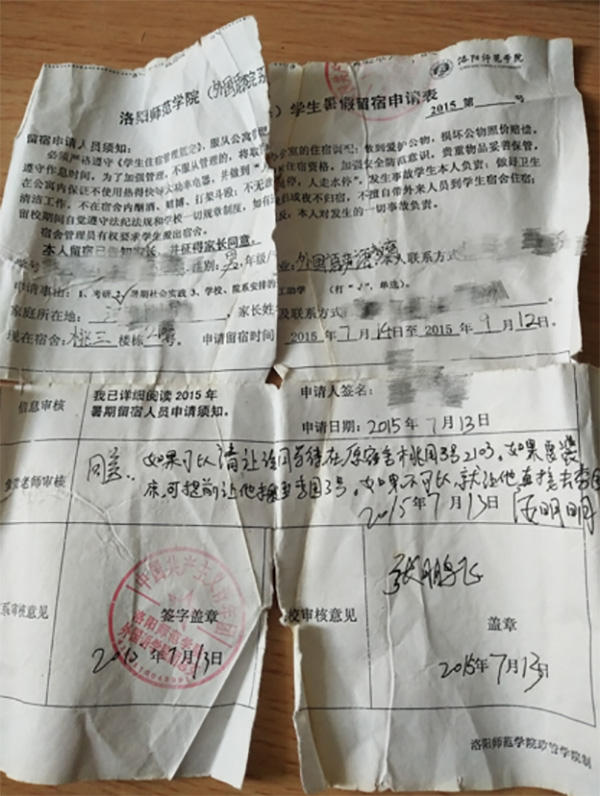 洛阳师范学院
洛阳师范学院（外国语学院 ）学生暑假留宿申请表
2015 第 号
留宿申请人员须知：
必须严格遵守《学生住宿管理规定》，服从公寓 室的住宿调配；做到爱护公物，损坏公物照价赔偿。
遵守作息时间。为了加强管理，不服从管理的，将取 住宿资格，加强安全防范意识，贵重物品妥善保管，
在公寓内保证不使用热得快等大功率电器，并做到“人 停，人走水停”，发生事故学生本人负责；做好卫生
清洁工作，不在宿舍内酗酒、赌博、打架斗殴；不无故 或夜不归宿，不擅自带外来人员到学生宿舍住宿；
留校期间自觉遵守法纪法规和学校一切规章制度，如有 反，本人对发生的一切事故负责。
宿舍管理员有权要求学生退出宿舍。
本人留宿已告知家长，并征得家长同意。
性别：男 年级/ 业：外国语 本人联系方式
申请事由：1、考研 2、暑期社会实践 3、学校、院系安排的 工助学 （打“√”，单选）。
家庭所在地： 家长姓 及联系方式
现在宿舍：桃三 楼栋 号。 申请留宿时间 2015 年 7 月 14 日至 2015 年 9 月 12 日。
信息审核 我已详细阅读 2015 年
暑期留宿人员申请须知。
申请人签名：
申请日期：2015 年 7 月 13 日
老师审核 同意。如果可以请让该同学待在原宿舍 桃园3号2103。如果要
床，可提前让他 李园3号。如果不可以，就让他直接去李园
2015年7月13日 明明
审核意见
中国共产主义青年团
洛阳师范学院
外国语学院
签字盖章
年7月13日
校审核意见
张鹏飞
盖章
2015年7月13日
洛阳师范学院 管学院制